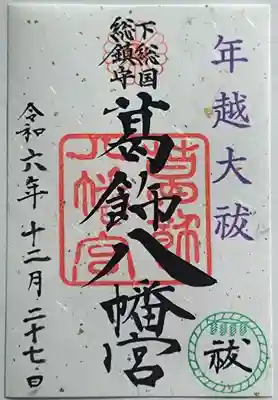 年越大祓
下総国
総鎮守
葛飾八幡宮
令和六年十二月二十七日
祓